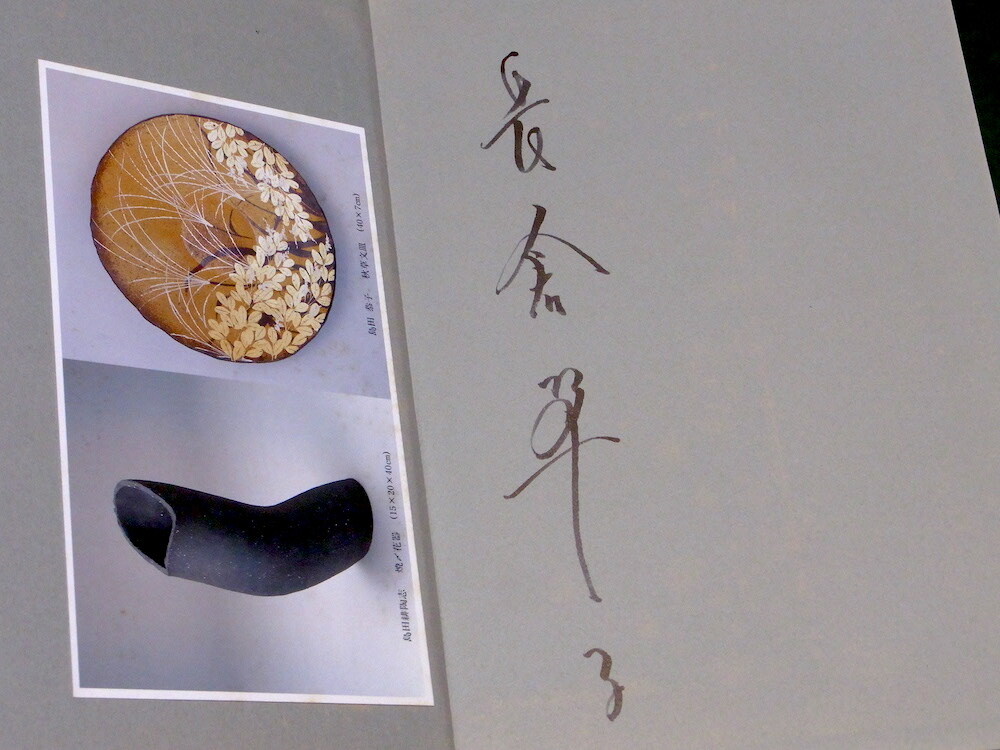 長倉翠子
島田 恭子 秋草文皿 (40×7cm)
島田耕陶志 焼〆花器 (15×20×40cm)